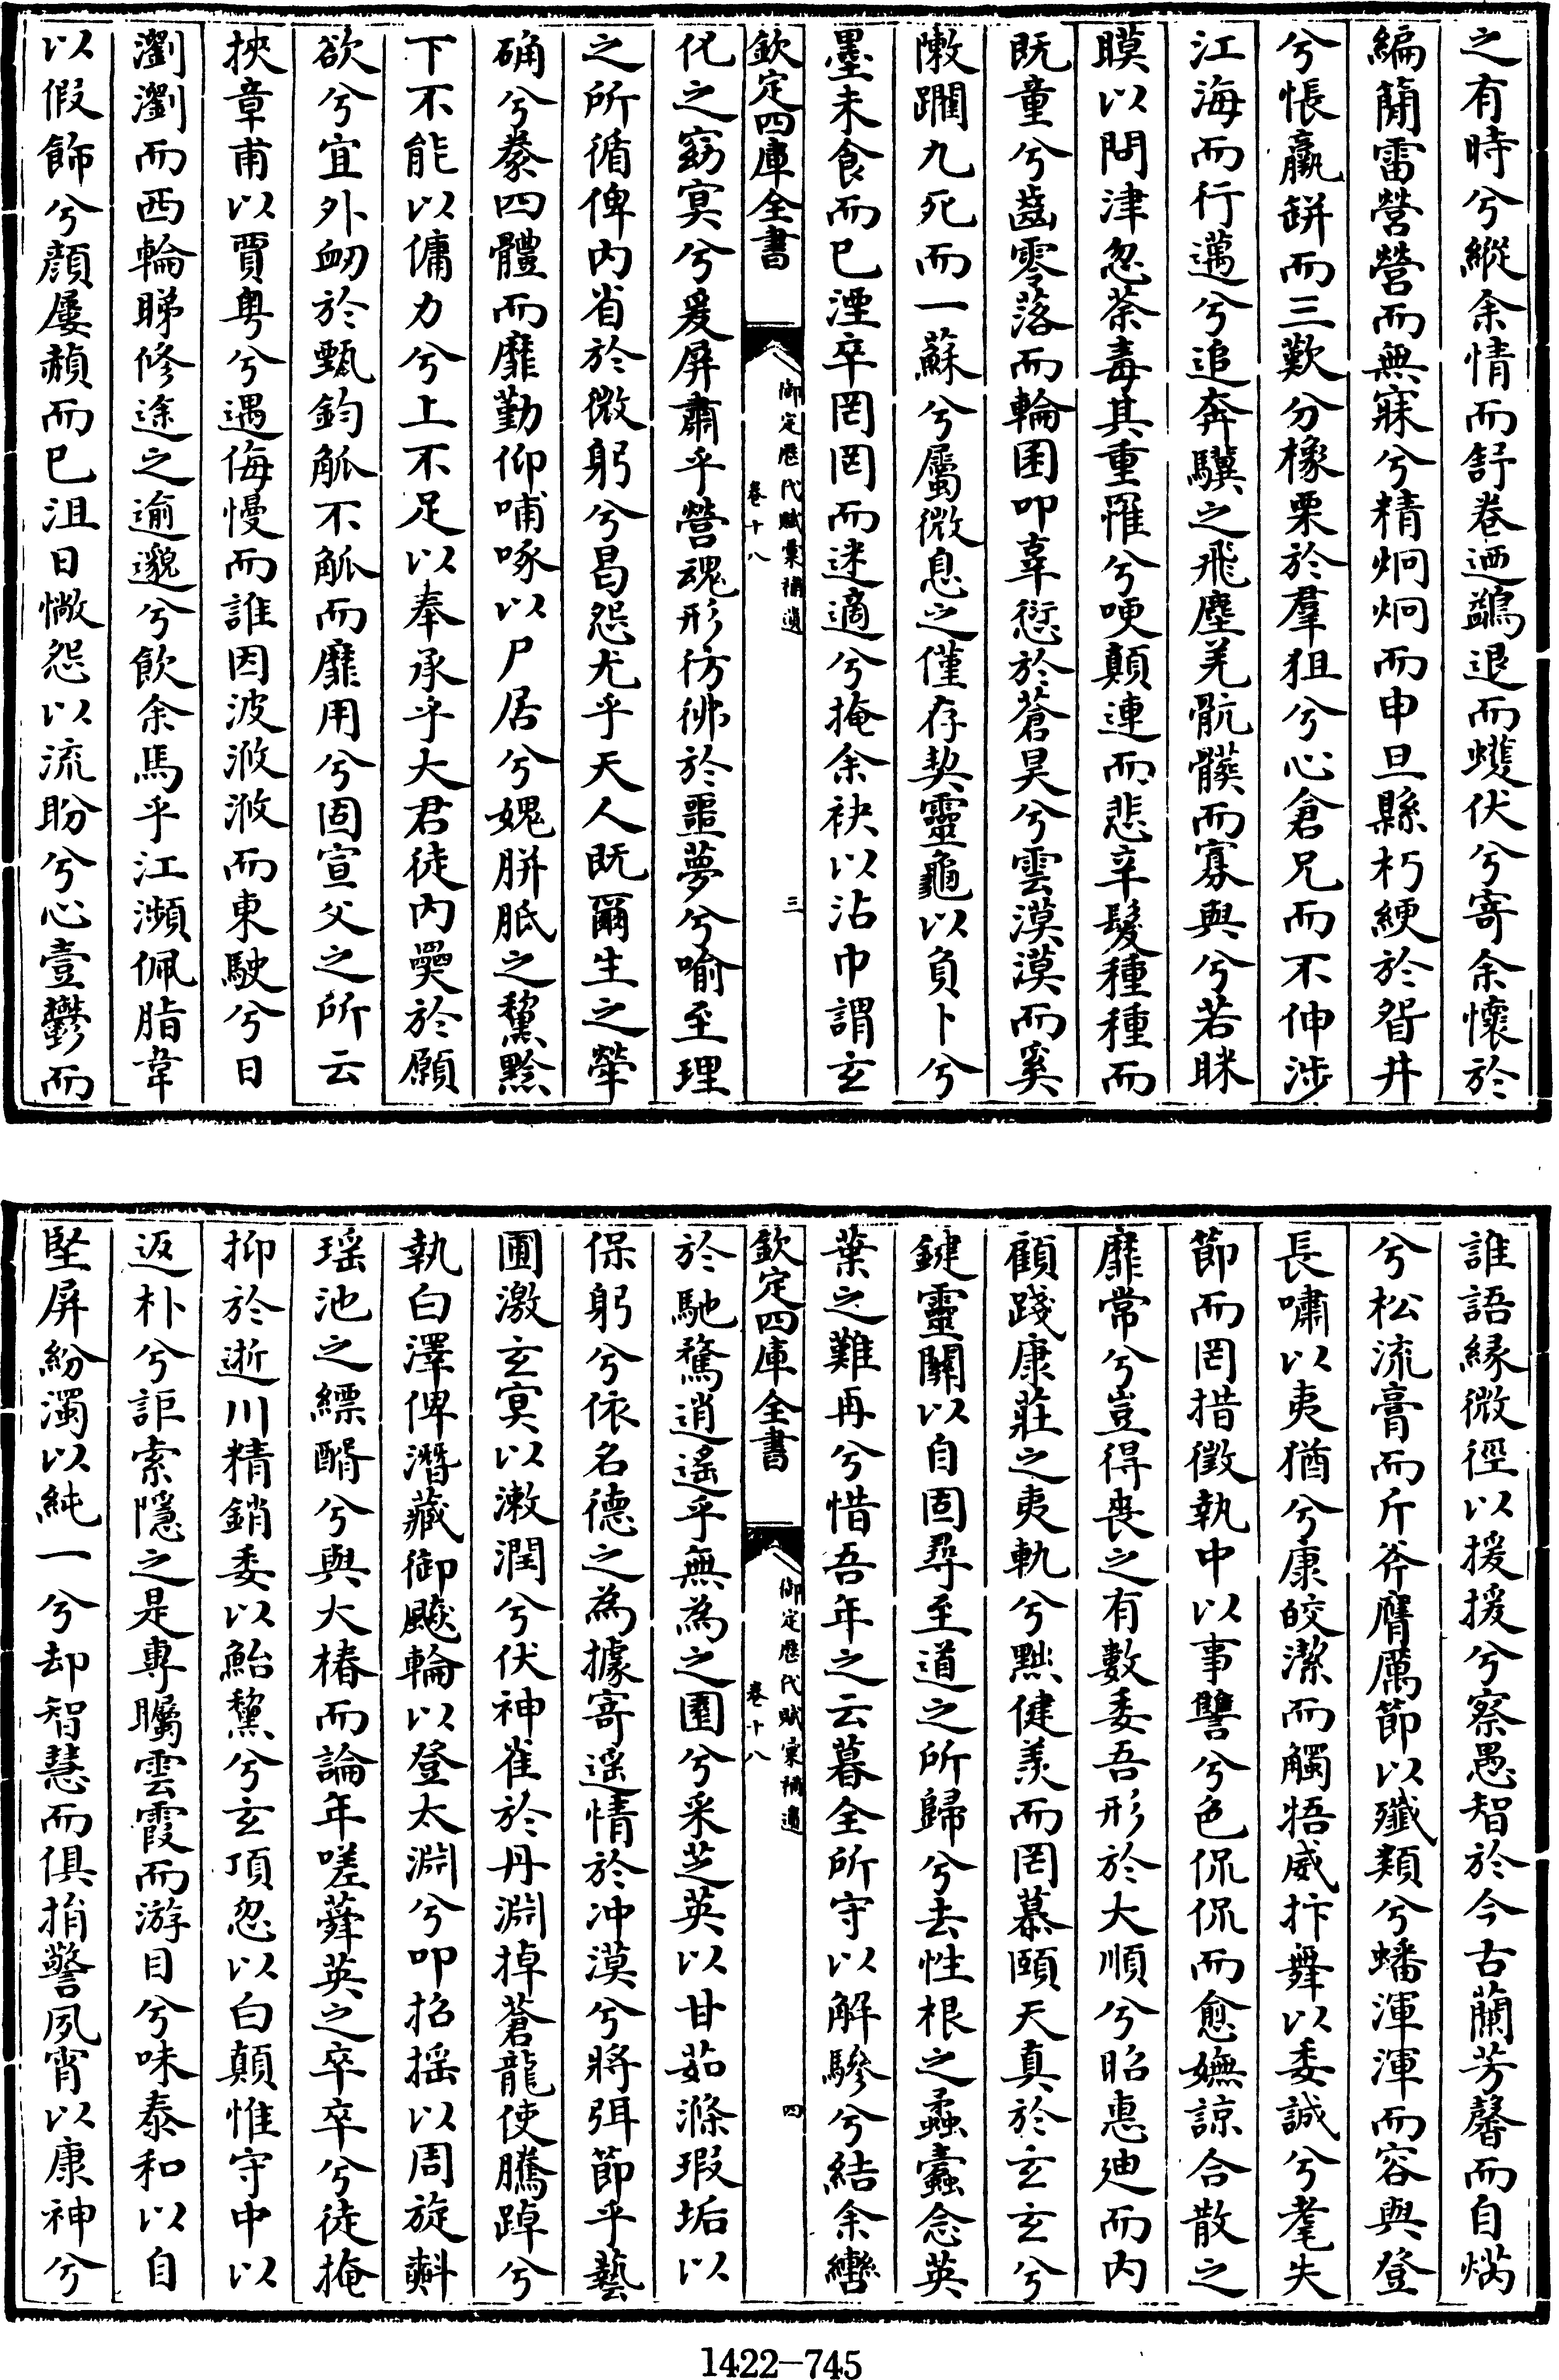 之有時兮縱余情而舒卷迺鷁退而蠖伏兮寄余懷於
編蕳雷營營而無寐兮精炯炯而申旦縣朽綆於眢井
兮悵羸缾而三歎分橡栗於羣狙兮心倉兄而不伸涉
江海而行邁兮追奔驥之飛塵羌骯髒而寡與兮若眯
瞙以問津忽荼毒其重罹兮哽顛連而悲辛髮種種而
既童兮齒零落而輪囷叩辜愆於蒼昊兮雲漠漠而奚
憞躙九死而一蘇兮屬微息之僅存契靈龜以負卜兮
墨未食而已湮卒罔罔而迷適兮掩余袂以沾巾謂玄
欽定四庫全書
御定歷代賦彙補遺
卷十八
三
化之窈冥兮爰屏肅乎營魂形彷彿於噩夢兮喻至理
之所循俾内省於微躬兮曷怨尤乎天人既爾生之犖
确兮豢四體而靡勤仰哺啄以尸居兮媿胼胝之黧黔
下不能以傭力兮上不足以奉承乎大君徒内奰於願
欲兮宜外衂於甄鈞觚不觚而靡用兮固宣父之所云
挾章甫以賈粤兮遇侮慢而誰因波浟浟而東駛兮日
瀏瀏而西輪睇修途之逾邈兮飲余馬乎江瀕佩脂韋
以假飾兮顔屢頳而已沮日惝怨以流盼兮心壹鬱而
誰語緣微徑以援援兮察愚智於今古蘭芳馨而自焫
兮松流膏而斤斧膺厲節以殲類兮蟠渾渾而容與登
長嘯以夷猶兮康皎潔而觸牾威抃舞以委誠兮耄失
節而罔措徵執中以事讐兮色侃侃而愈嫵諒合散之
靡常兮豈得喪之有數委吾形於大順兮昭惠迪而内
顧踐康莊之夷軌兮黜健羨而罔慕頤天真於玄玄兮
鍵靈關以自固尋至道之所歸兮去性根之蟊蠹念英
葉之難再兮惜吾年之云暮全所守以解驂兮結余轡
欽定四庫全書
御定歷代賦彙補遺
卷十八
四
於馳騖逍遙乎無為之圃兮采芝英以甘茹滌瑕垢以
保躬兮依名德之為據寄遥情於冲漠兮將弭節乎藝
圃激玄冥以漱潤兮伏神雀於丹淵掉蒼龍使騰踔兮
執白澤俾潛藏御飈輪以登太淵兮叩招摇以周旋㪺
瑶池之縹醑兮與大椿而論年嗟蕣英之卒卒兮徒掩
抑於逝川精銷委以鮐黧兮玄頂忽以白顛惟守中以
返朴兮詎索隱之是專矚雲霞而游目兮味泰和以自
堅屏紛濁以純一兮却智慧而俱捐警夙宵以康神兮
1422—745